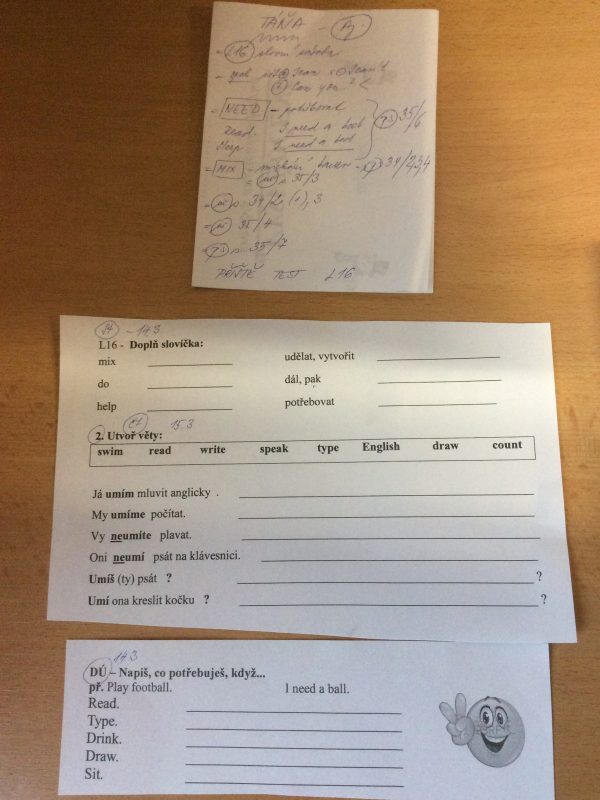 TÁŇA - Aj.
= L16 slovní zásoba
- opak. uč. + I can x - I can't
? Can you?
= NEED - potřebovat
Read. I need a book
Sleep I need a bed
35/6
= MIX - míchání barev - 34/2,3,4
= uč s 35/3
= uč s 34/2, (1), 3
= uč 35/4
= PS s 35/7
PŘÍŠTĚ TEST L16
- 14.3
L16 - Doplň slovíčka:
mix ____________ udělat, vytvořit ____________
do ____________ dál, pak ____________
help ____________ potřebovat ____________
15.3
2. Utvoř věty:
swim read write speak type English draw count
Já umím mluvit anglicky . ____________
My umíme počítat. ____________
Vy neumíte plavat. ____________
Oni neumí psát na klávesnici. ____________
Umíš (ty) psát ? ____________?
Umí ona kreslit kočku ? ____________?
14.3
DÚ – Napiš, co potřebuješ, když...
př. Play football. I need a ball.
Read. ____________
Type. ____________
Drink. ____________
Draw. ____________
Sit. ____________